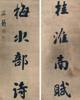 桂淮南賦
梅水部詩
石菴